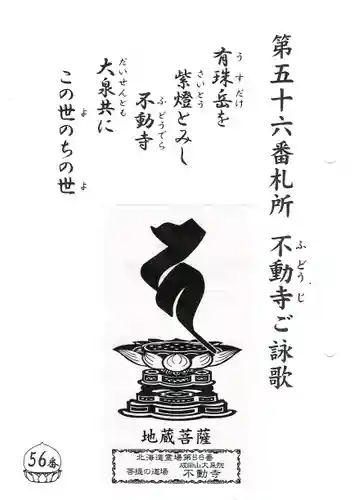 第五十六番札所 不動寺ご詠歌
ふどうじ
有珠岳を
うすだけ
紫燈とみし
さいとう
不動寺
ふどうでら
大泉共に
だいせんとも
この世のちの世
よ よ
地蔵菩薩
北海道霊場第56番
菩提の道場 成田山大泉院 不動寺
56番